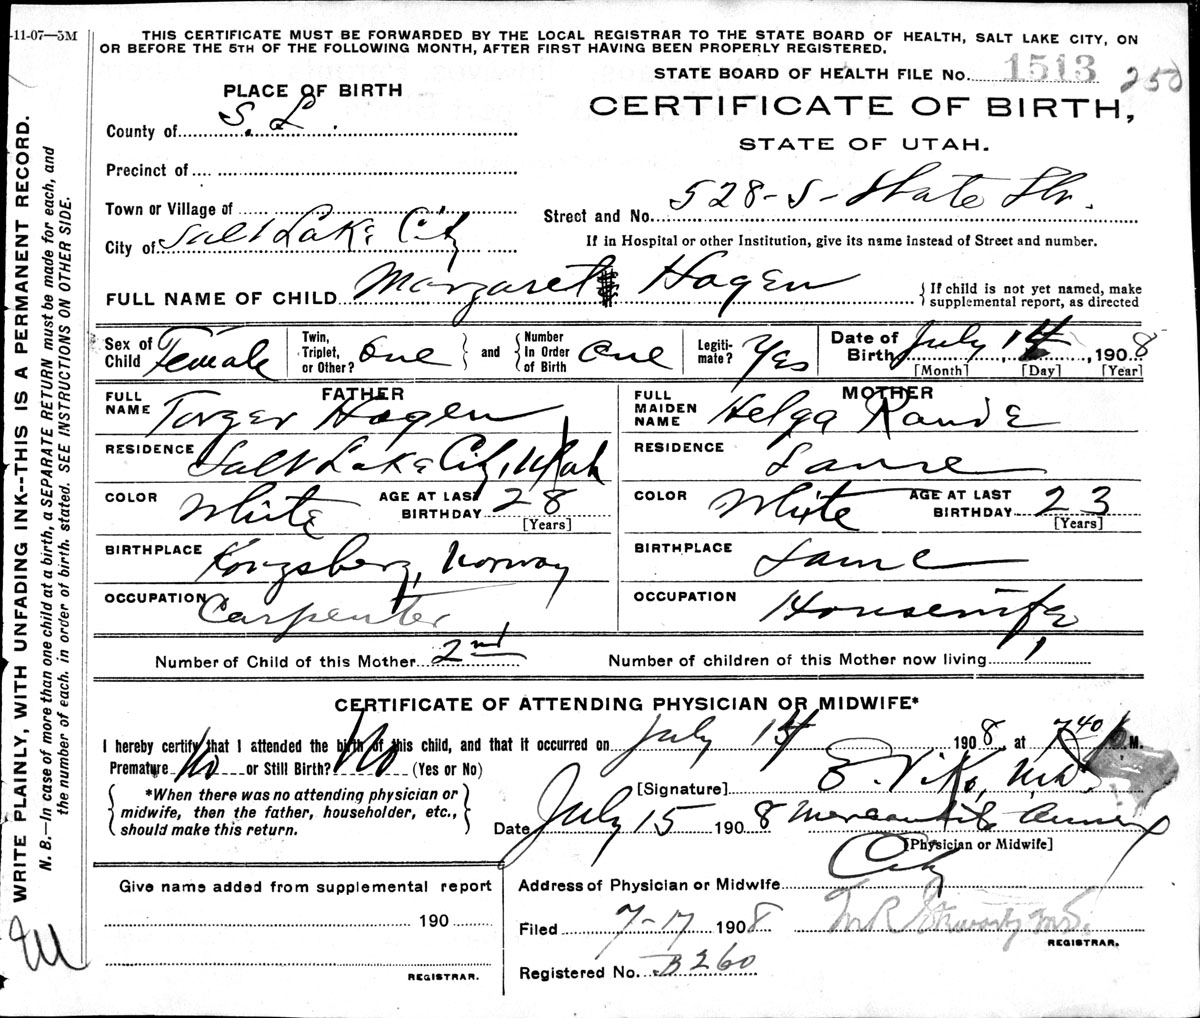 -11-07—5M
THIS CERTIFICATE MUST BE FORWARDED BY THE LOCAL REGISTRAR TO THE STATE BOARD OF HEALTH, SALT LAKE CITY, ON
OR BEFORE THE 5TH OF THE FOLLOWING MONTH, AFTER FIRST HAVING BEEN PROPERLY REGISTERED.
STATE BOARD OF HEALTH FILE No. 1513 250
PLACE OF BIRTH
CERTIFICATE OF BIRTH,
STATE OF UTAH.
County of S. L.
Precinct of
Town or Village of
City of Salt Lake City
Street and No. 528-S-State Str.
If in Hospital or other Institution, give its name instead of Street and number.
FULL NAME OF CHILD Margaret Hagen
{ If child is not yet named, make
supplemental report, as directed
Sex of Child Female
Twin, Triplet, or Other? One } and { Number In Order of Birth One
Legitimate? Yes
Date of Birth July, 14, 1908
[Month] [Day] [Year]
FATHER
FULL NAME Torger Hagen
RESIDENCE Salt Lake City, Utah
COLOR White AGE AT LAST BIRTHDAY 28 [Years]
BIRTHPLACE Kongsberg, Norway
OCCUPATION Carpenter
MOTHER
FULL MAIDEN NAME Helga Raude
RESIDENCE Same
COLOR White AGE AT LAST BIRTHDAY 23 [Years]
BIRTHPLACE Same
OCCUPATION Housewife
Number of Child of this Mother 2nd
Number of children of this Mother now living 1
CERTIFICATE OF ATTENDING PHYSICIAN OR MIDWIFE*
I hereby certify that I attended the birth of this child, and that it occurred on July 14 1908 at 7 40 P.M.
Premature No or Still Birth? No (Yes or No)
{ *When there was no attending physician or
midwife, then the father, householder, etc.,
should make this return. }
[Signature] E. Viko, M.D.
Date July 15 1908 Mercantile Annex
[Physician or Midwife]
Address of Physician or Midwife City
Give name added from supplemental report
190
REGISTRAR.
Filed 7-17 1908
REGISTRAR.
Registered No. B260
WRITE PLAINLY, WITH UNFADING INK--THIS IS A PERMANENT RECORD.
N. B.—In case of more than one child at a birth, a SEPARATE RETURN must be made for each, and
the number of each, in order of birth, stated. SEE INSTRUCTIONS ON OTHER SIDE.